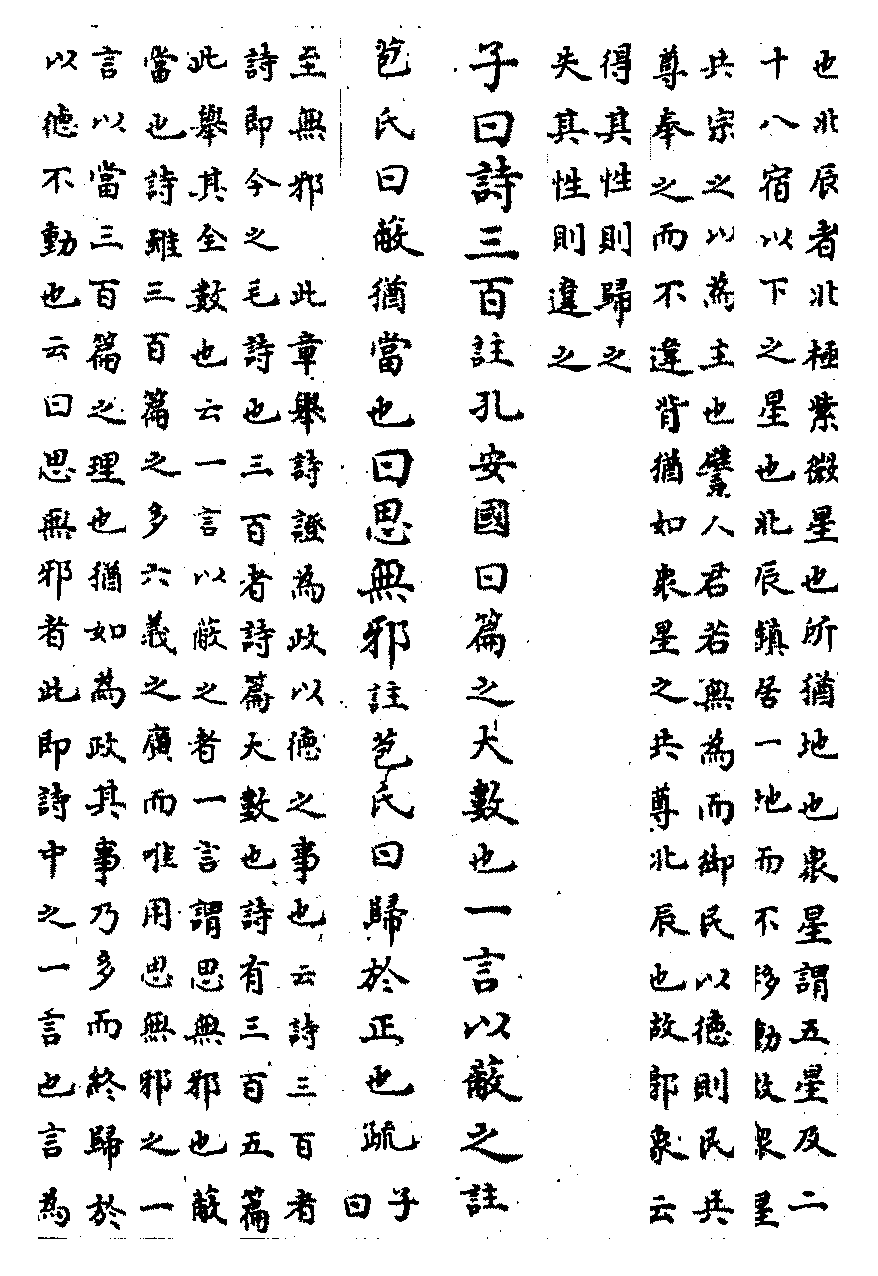 也北辰者北極紫微星也所猶地也衆星謂五星及二
十八宿以下之星也北辰鎮居一地而不移動故衆星
共宗之以為主也譬人君若無為而御民以德則民共
尊奉之而不違背猶如衆星之共尊北辰也故郭象云
得其性則歸之
失其性則違之
子曰詩三百註孔安國曰篇之大數也一言以蔽之註
苞氏曰蔽猶當也曰思無邪註苞氏曰歸於正也疏子曰
至無邪 此章舉詩證為政以德之事也云詩三百者
詩即今之毛詩也三百者詩篇大數也詩有三百五篇
此舉其全數也云一言以蔽之者一言謂思無邪也蔽
當也詩雖三百篇之多六義之廣而唯用思無邪之一
言以當三百篇之理也猶如為政其事乃多而終歸於
以德不動也云曰思無邪者此即詩中之一言也言為